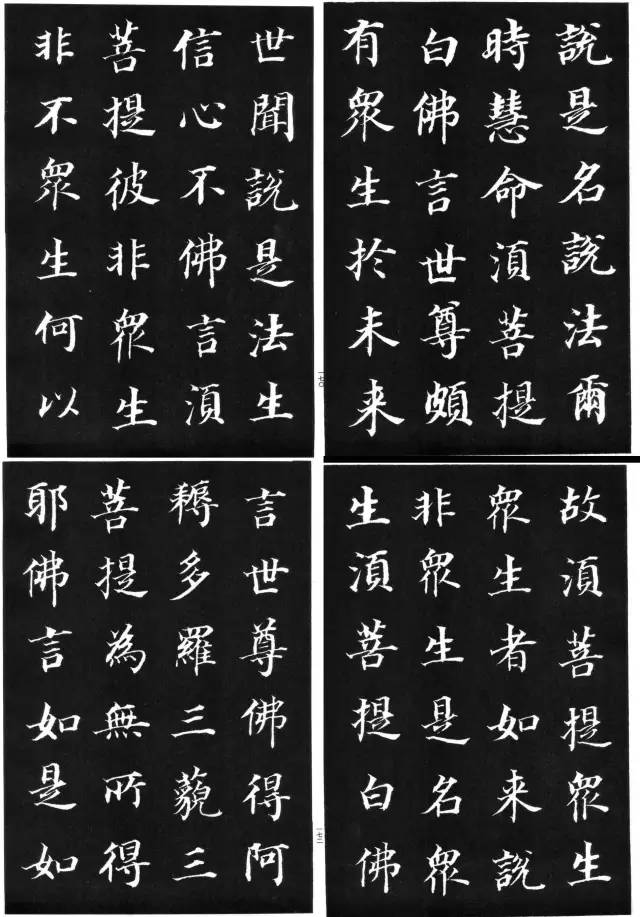 說是名說法爾
時慧命須菩提
白佛言世尊頗
有眾生於未来
世聞說是法生
信心不佛言須
菩提彼非眾生
非不眾生何以
一七〇
故須菩提眾生
眾生者如来說
非眾生是名眾
生須菩提白佛
言世尊佛得阿
耨多羅三藐三
菩提為無所得
耶佛言如是如
一七二